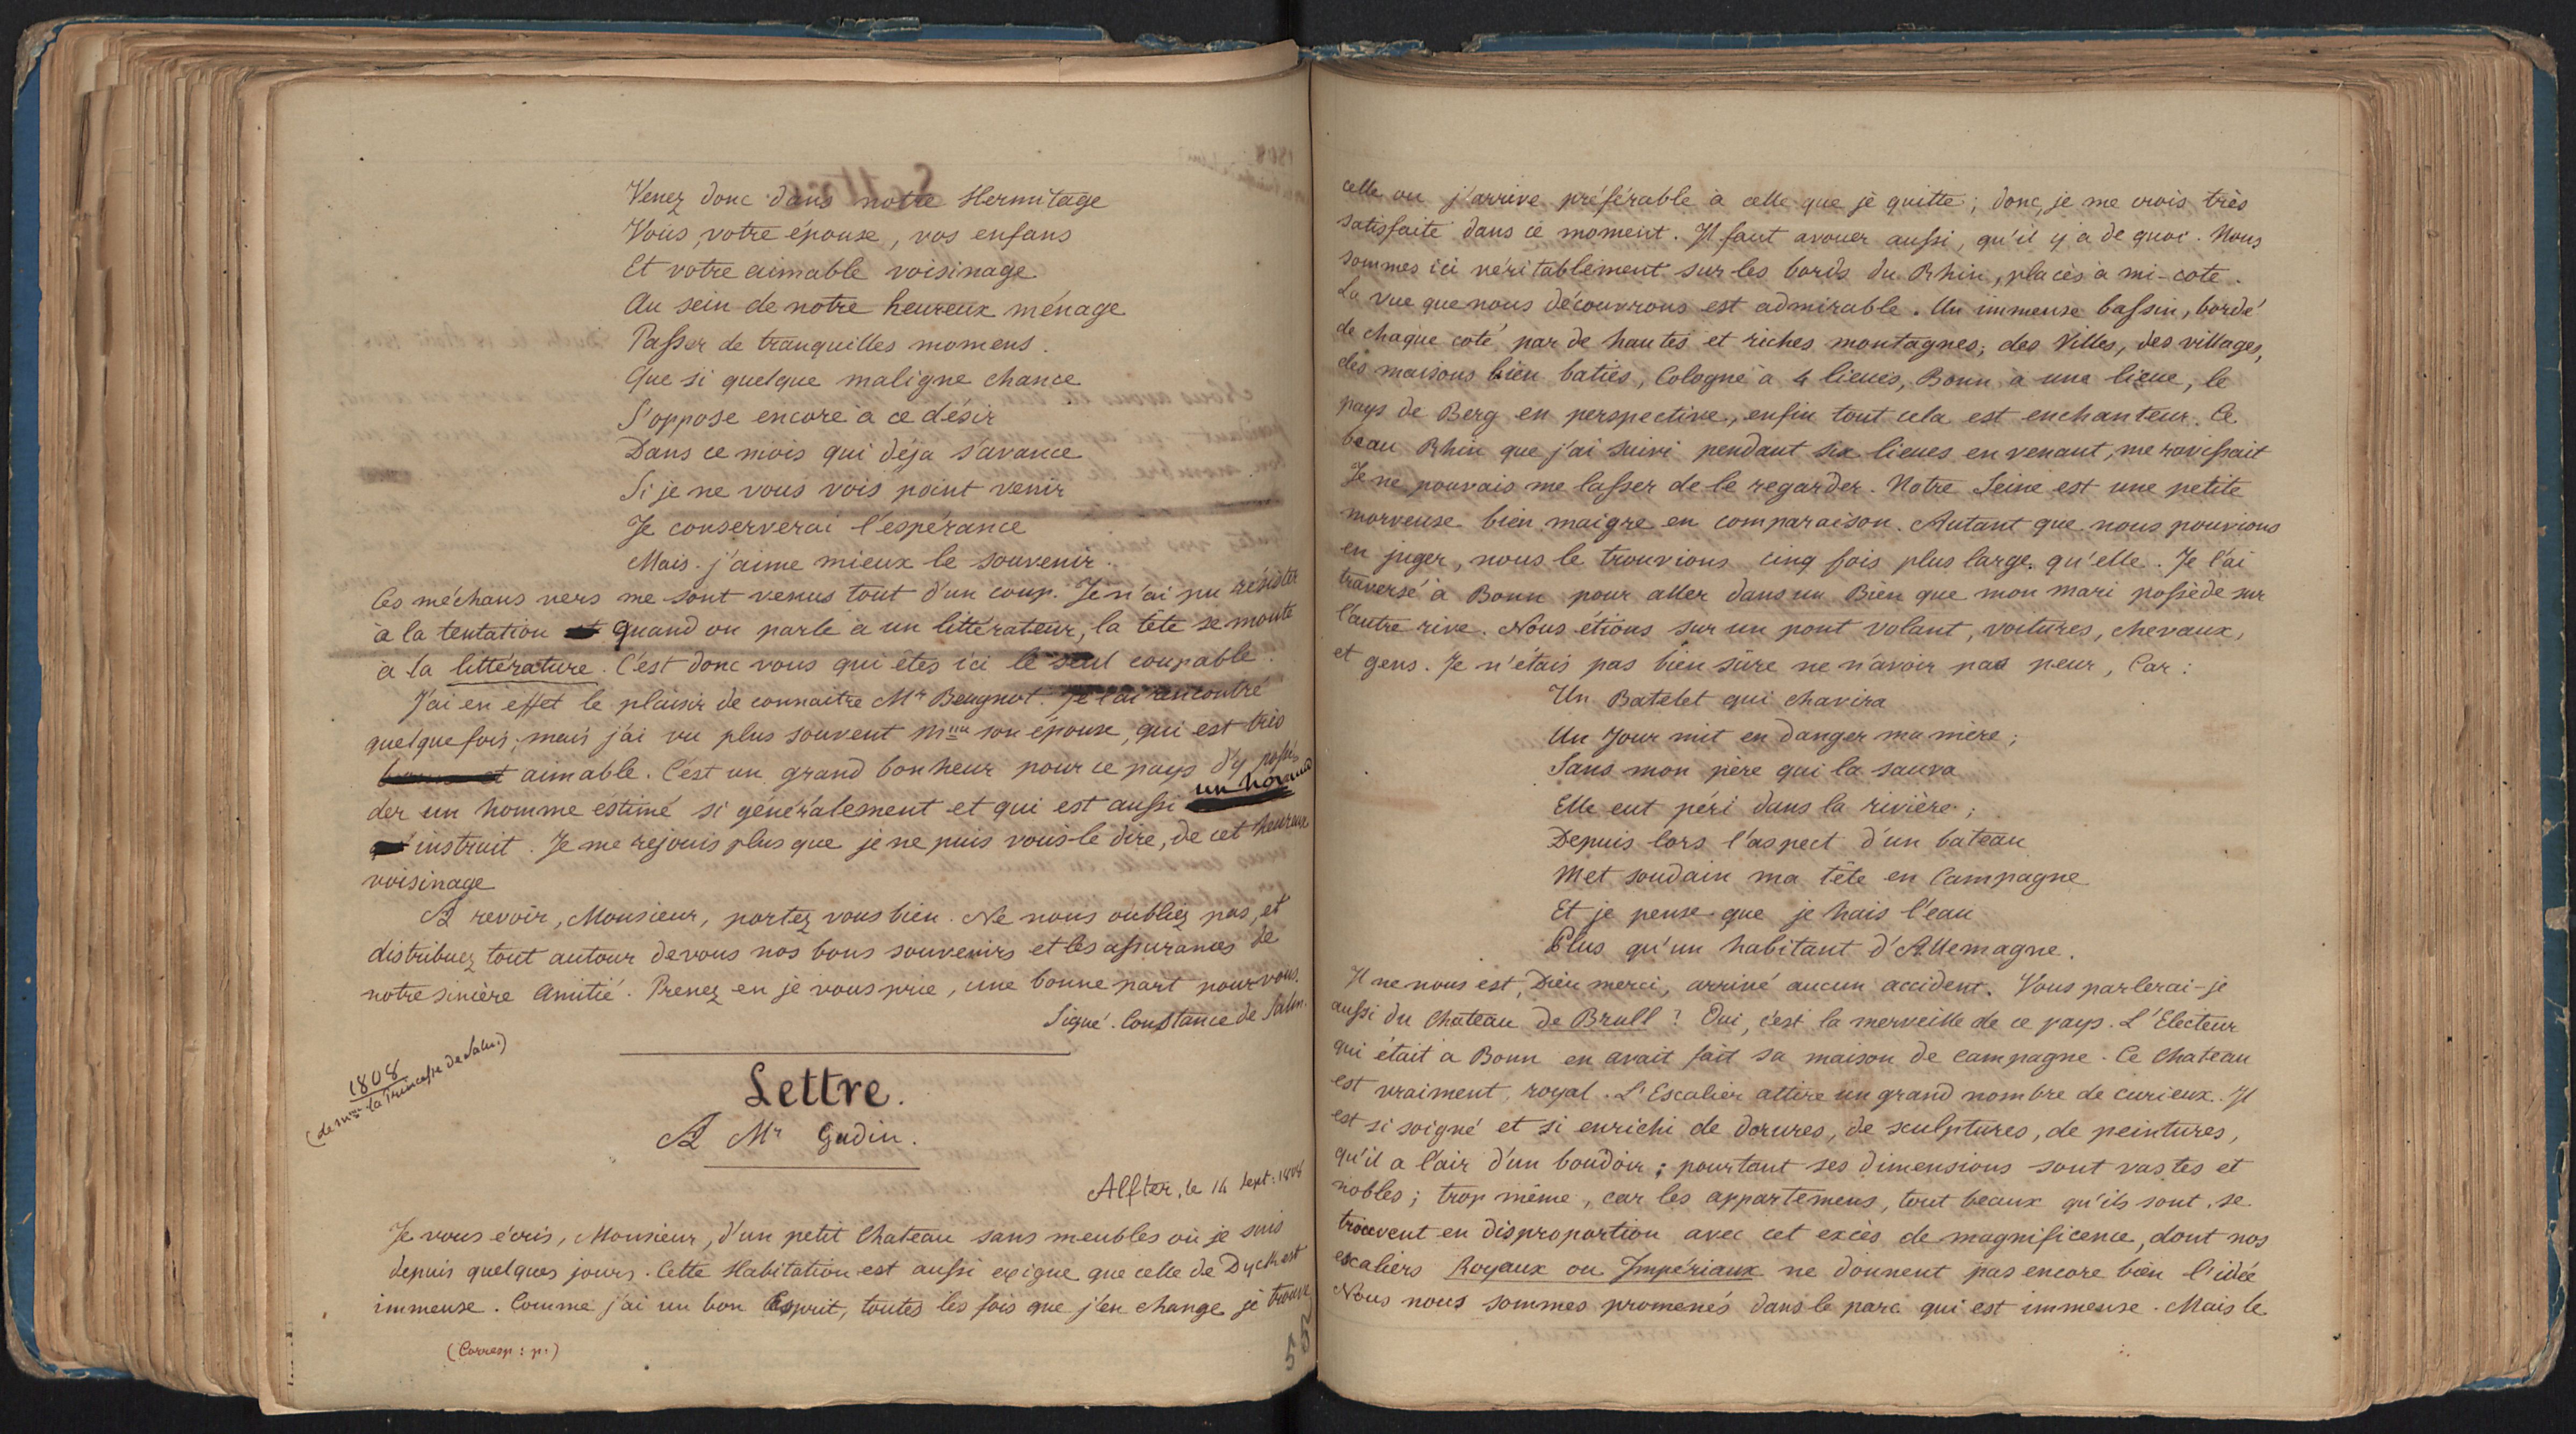 Venez donc dans notre Hermitage
Vous, votre épouse, vos enfans
Et votre aimable voisinage
Au sein de notre heureux ménage
Passer de tranquilles momens.
Que si quelque maligne chance
S'oppose encore à ce désir
Dans ce mois qui déja s'avance
Si je ne vous vois point venir
Je conserverai l'espérance
Mais j'aime mieux le souvenir.
Ces méchans vers me sont venus tout d'un coup. Je n'ai pu résister
à la tentation quand on parle à un littérateur, la tête se monte
à la littérature. C'est donc vous qui êtes ici le seul coupable.
J'ai en effet le plaisir de connaitre Mr Beugnot. Je l'ai rencontré
quelquefois; mais j'ai vu plus souvent Mme son épouse, qui est très
aimable. C'est un grand bonheur pour ce pays d'y possé-
der un homme estimé si généralement et qui est aussi
instruit. Je me rejouis plus que je ne puis vous le dire, de cet heureux
voisinage
A revoir, Monsieur, portez vous bien. Ne nous oubliez pas, et
distribuez tout autour de vous nos bons souvenirs et les assurances de
notre sincère Amitié. Prenez en je vous prie, une bonne part pour vous.
Signé. Constance de Salm.
1808
(de Mme la Princesse de Salm.)
Lettre.
A Mr Gudin.
Alfter, le 14 Sept: 1808
Je vous écris, Monsieur, d'un petit Chateau sans meubles où je suis
depuis quelques jours. Cette Habitation est aussi exigue que celle de Dyck est
immense. Comme j'ai un bon Esprit, toutes les fois que j'en change je trouve
(Corresp: p.)
55
celle ou j'arrive préférable à celle que je quitte; donc, je me crois très
satisfaite dans ce moment. Il faut avouer aussi, qu'il y a de quoi. Nous
sommes ici véritablement sur les bords du Rhin, placés à mi-cote.
La vue que nous découvrons est admirable. Un immense bassin, bordé
de chaque coté par de hautes et riches montagnes; des Villes, des villages,
des maisons bien baties, Cologne à 4 lieues, Bonn à une lieue, le
pays de Berg en perspective, enfin tout cela est enchanteur. Ce
beau Rhin que j'ai suivi pendant six lieues en venant, me ravissait
Je ne pouvais me lasser de le regarder. Notre Seine est une petite
morveuse bien maigre en comparaison. Autant que nous pouvions
en juger, nous le trouvions cinq fois plus large qu'elle. Je l'ai
traversé à Bonn pour aller dans un Bien que mon mari possède sur
l'autre rive. Nous étions sur un pont volant, voitures, chevaux,
et gens. Je n'étais pas bien sûre ne n'avoir pas peur, Car:
Un Batelet qui chavira
Un Jour mit en danger ma mère;
Sans mon père qui la sauva
Elle eut péri dans la rivière;
Depuis lors l'aspect d'un bateau
Met soudain ma tête en Campagne
Et je pense que je hais l'eau
Plus qu'un habitant d'Allemagne.
Il ne nous est, Dieu merci, arrivé aucun accident. Vous parlerai-je
aussi du Chateau de Brull? Oui, c'est la merveille de ce pays. L'Electeur
qui était à Bonn en avait fait sa maison de campagne. Ce Chateau
est vraiment royal. L'Escalier attire un grand nombre de curieux. Il
est si soigné et si enrichi de dorures, de sculptures, de peintures,
qu'il a l'air d'un boudoir; pourtant ses dimensions sont vastes et
nobles; trop même, car les appartemens, tout beaux qu'ils sont, se
trouvent en disproportion avec cet excès de magnificence, dont nos
escaliers Royaux ou Impériaux ne donnent pas encore bien l'idée
Nous nous sommes promenés dans le parc qui est immense. Mais le